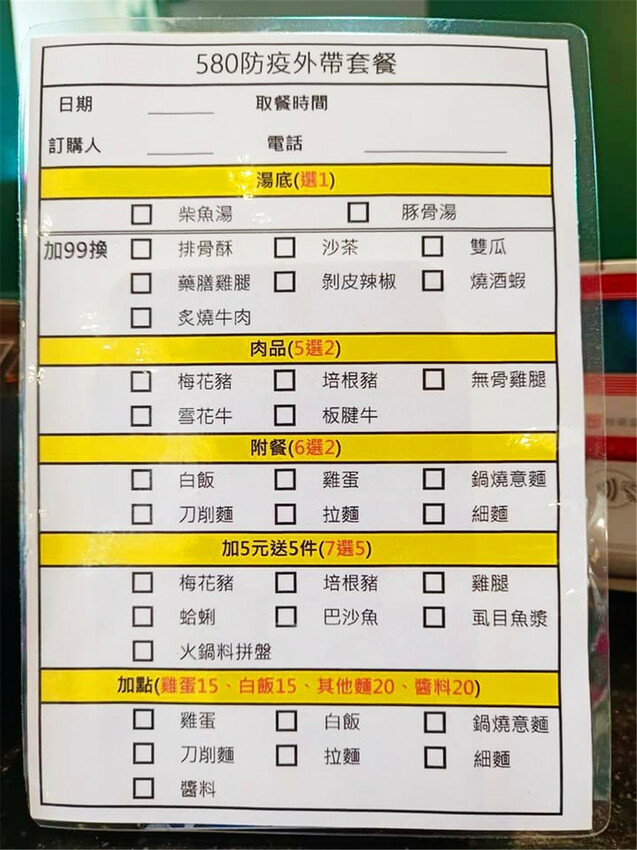 580防疫外帶套餐
日期 取餐時間
訂購人 電話
湯底(選1)
柴魚湯 豚骨湯
加99換 排骨酥 沙茶 雙瓜
藥膳雞腿 剝皮辣椒 燒酒蝦
炙燒牛肉
肉品(5選2)
梅花豬 培根豬 無骨雞腿
雪花牛 板腱牛
附餐(6選2)
白飯 雞蛋 鍋燒意麵
刀削麵 拉麵 細麵
加5元送5件(7選5)
梅花豬 培根豬 雞腿
蛤蜊 巴沙魚 虱目魚漿
火鍋料拼盤
加點(雞蛋15、白飯15、其他麵20、醬料20)
雞蛋 白飯 鍋燒意麵
刀削麵 拉麵 細麵
醬料